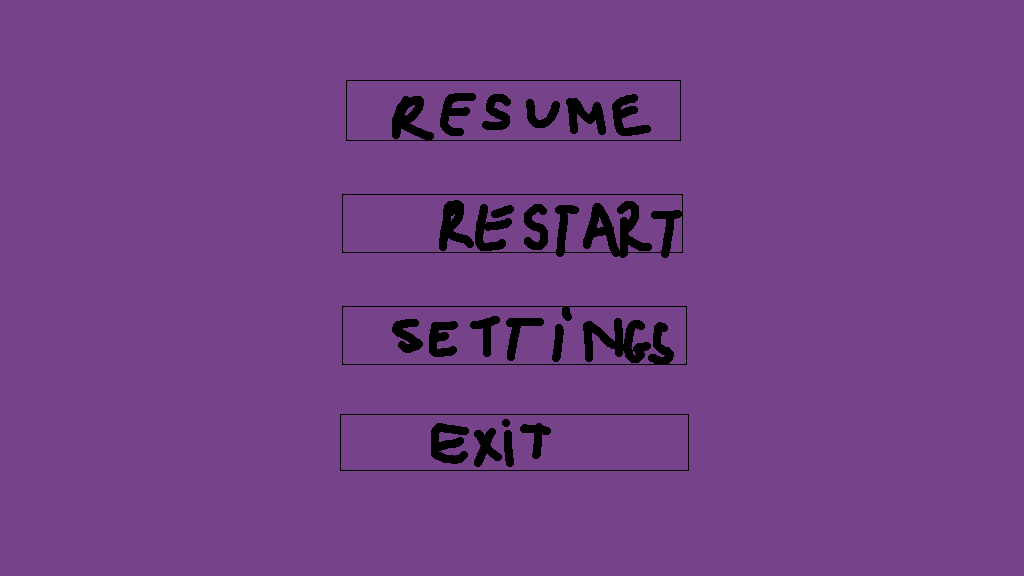 RESUME
RESTART
SETTiNGS
EXiT